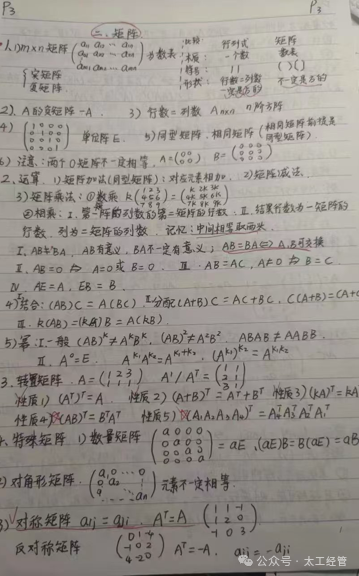 P3 P3
二、矩阵
1、1) m×n 矩阵 (a11 a12 … a1n a21 a22 … a2n am1 am2 … amn) 数表 比较 行列式 矩阵
本质: 一个数 数表
符号: | | ( ) [ ]
形状: 行数=列数 不一定是方的
一定是方的
实矩阵
复矩阵
2) A的负矩阵 -A. 3) 行数=列数 An×n n阶方阵
4) (1 0 0 0 0 1 0 0 0 0 1 0 0 0 0 1) 单位阵E. 5) 同型矩阵、相同矩阵 (相同矩阵前提是同型矩阵)
6) 注意: 两个0矩阵不一定相等. A=(0 0 0 0) B=(0 0 0 0 0 0)
2、运算. 1) 矩阵加法(同型矩阵): 对应元素相加. 2) 矩阵减法.
3) 矩阵乘法: ①数乘 k(1 2 3 4 5 6 7 8 9) = (k 2k 3k 4k 5k 6k 7k 8k 9k)
②相乘: I. 第一阵的列数=第二矩阵的行数. II. 结果行数为一矩阵的
行数, 列为二矩阵的列数. 记忆: 中间相等取两头.
I. AB≠BA, AB有意义, BA不一定有意义; AB=BA⇔A.B可交换
II. AB=0 ⇏ A=0或B=0. III. AB=AC, A≠0 ⇏ B=C
IV. AE=A, EB=B.
4) 结合: (AB)C=A(BC). II 分配(A+B)C=AC+BC, C(A+B)=CA+
III. k(AB)=(kA)B=A(kB)
5) 幂: I. 一般 (AB)^K≠A^K B^K, (AB)²≠A²B². ABAB≠AABB.
II. A⁰=E. A^K1 A^K2=A^K1+K2. (A^K1)^K2=A^K1K2
3、转置矩阵. A=(1 2 3 1 1 1) A'/A^T=(1 1 2 1 3 1)
性质1) (A^T)^T=A 性质2) (A+B)^T=A^T+B^T 性质3) (kA)^T=kA
性质4) (AB)^T=B^T A^T 性质5) (A1A2A3A4)^T=A4^T A3^T A2^T A1^T
4、特殊矩阵 1) 数量矩阵 (a 0 0 0 0 a 0 0 0 0 a 0 0 0 0 a) =aE, (aE)B=B(aE)=aB
2) 对角形矩阵. 元素不一定相等.
3) 对称矩阵 aij=aji. A^T=A (1 1 -1 1 2 0 -1 0 3)
反对称矩阵 A^T=-A. aij=-aji
公众号 · 太工经管